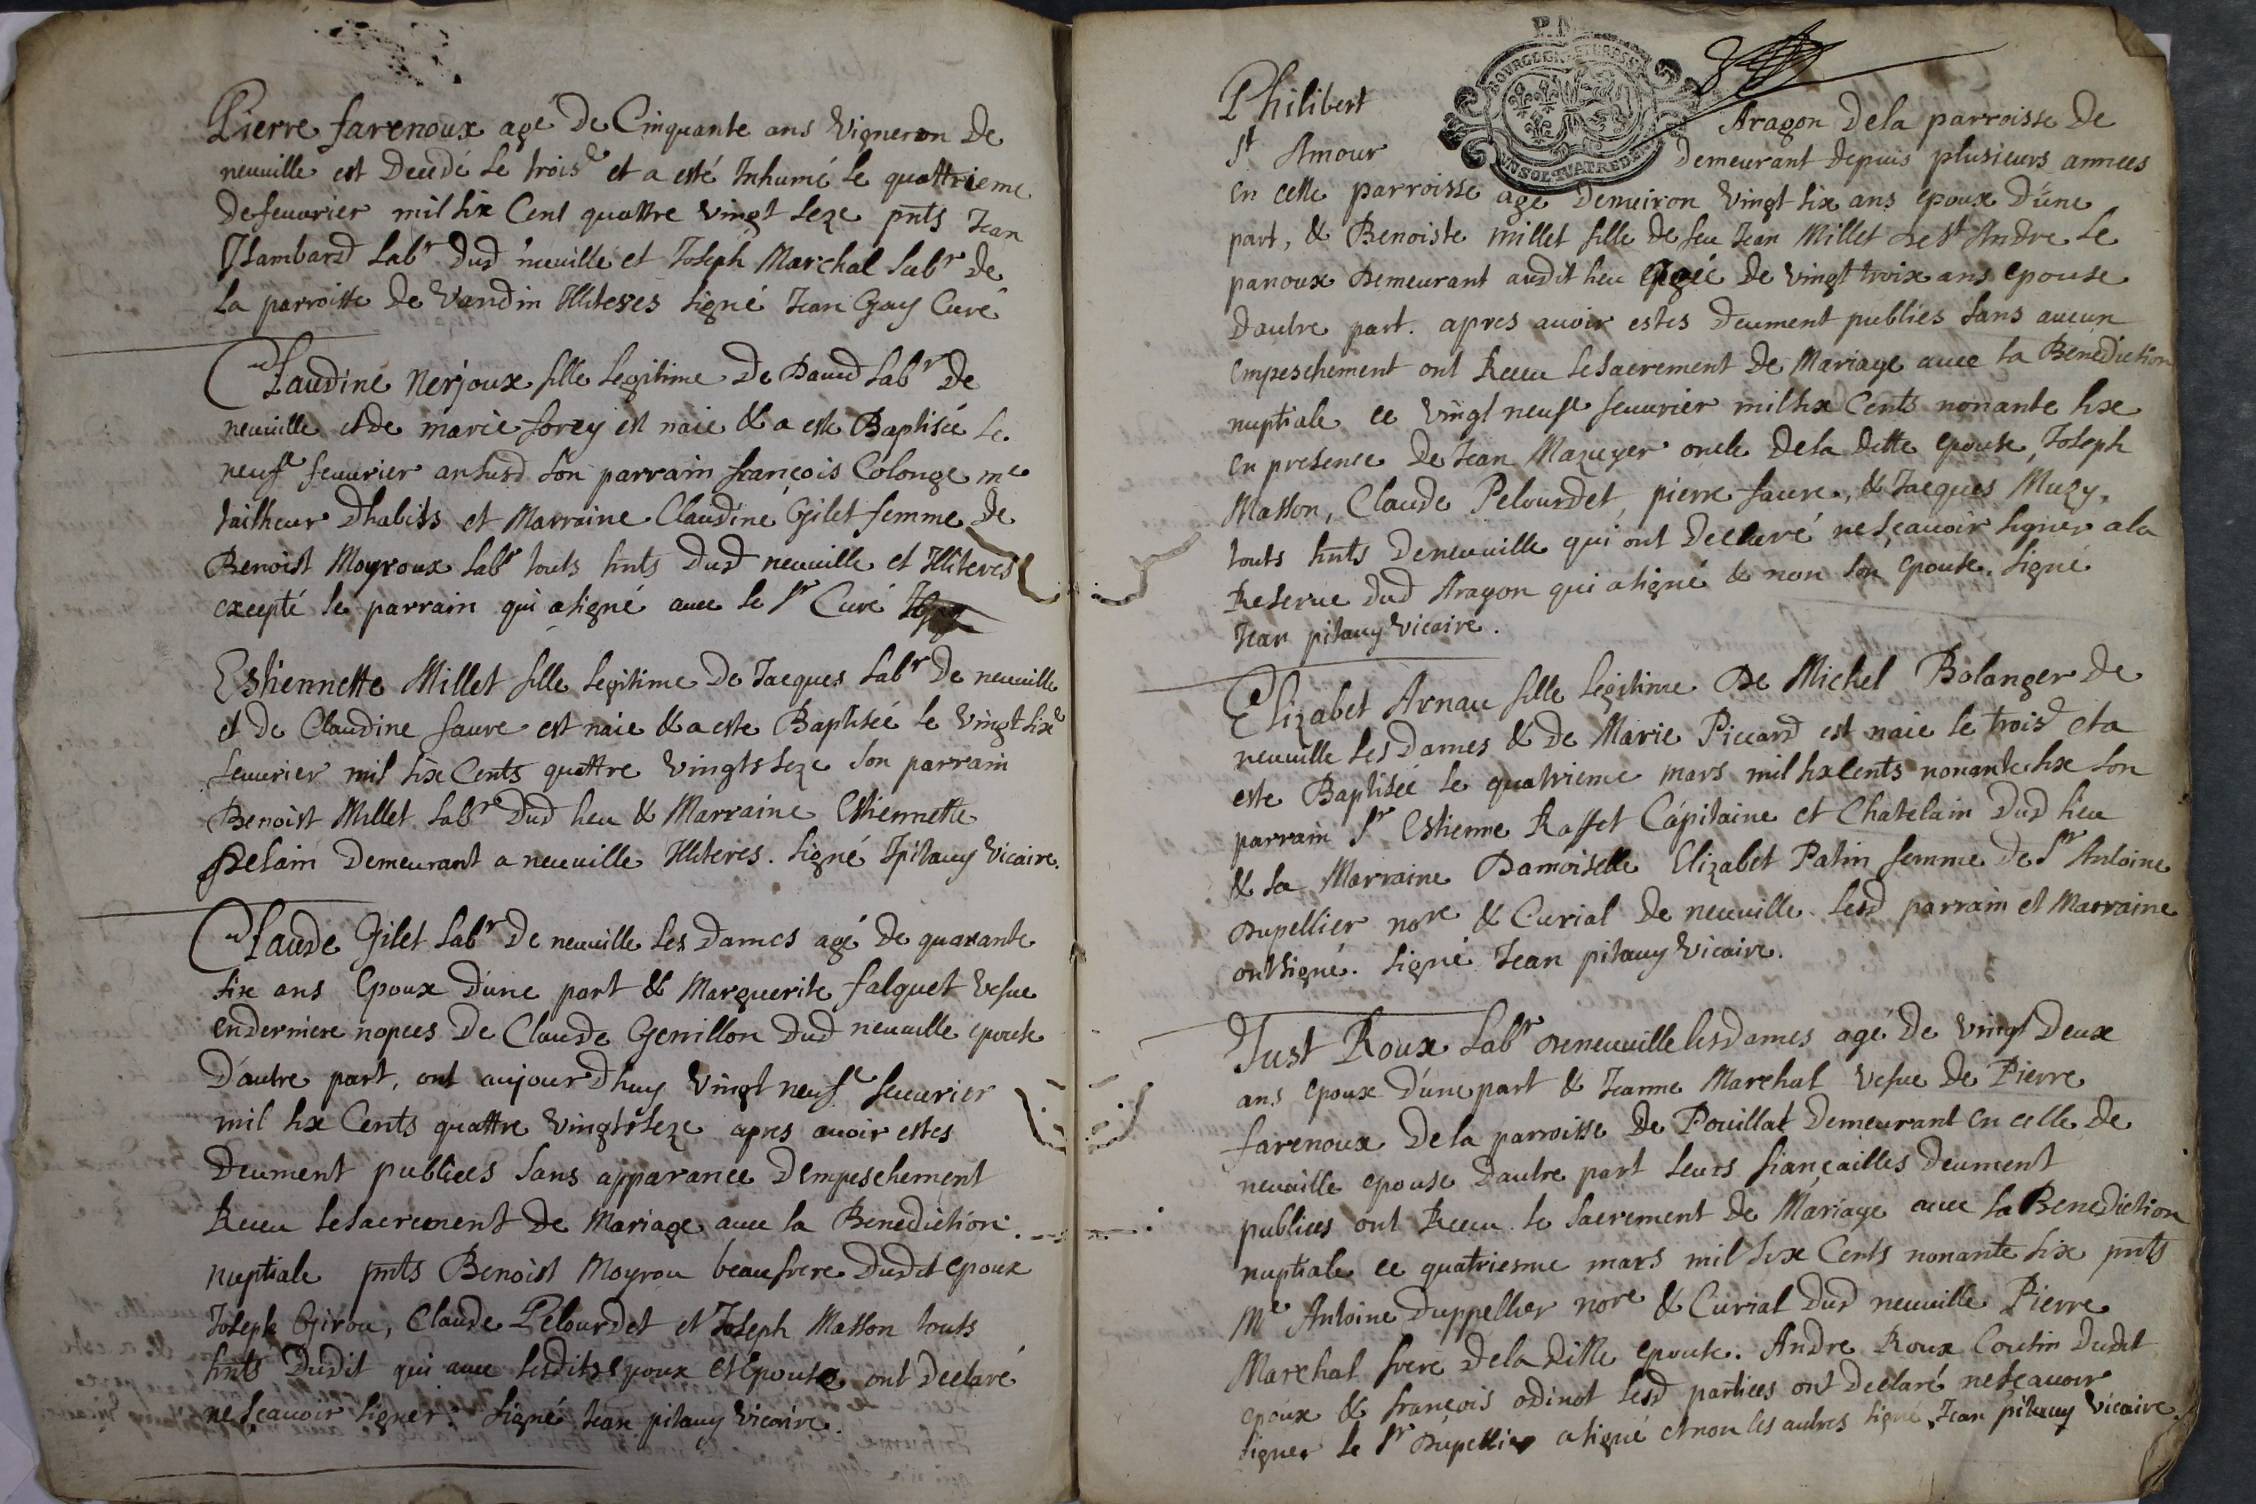 Pierre farenoux agé de Cinquante ans Vigneron de
neuuille est Decedé le trois.e et a esté Inhumé le quattrieme
de feuurier mil six Cent quattre vingt seze pnts Jean
Jsambard Labr dud neuuille et Joseph Marchal Labr de
la parroisse de Vandin Illiteres signé Jean Gay Curé
Claudine Nerjoux fille Legitime de Dauid Labr de
neuuille et de marie forey est naie & a este Baptisée Le
neufe feuurier an susd son parrain françois Colonge me
tailheur dhabits et Marraine Claudine Gilet femme de
Benoist Moyroux Labr touts hnts dud neuuille et Illiteres
excepté le parrain qui a signé auec le Sr Curé
Estiennette Millet fille Legitime de Jacques Labr de neuuille
et de Claudine faure est naie & a este Baptisée le Vingt sixe
feuurier mil six Cents quattre Vingts seze son parrain
Benoist Millet Labr dud lieu & Marraine Estiennette
Pelain Demeurant a neuuille Illiteres. signé J pitauy Vicaire.
Claude Gilet Labr de neuuille Les Dames agé de quarante
six ans Epoux d'une part & Marguerite falquet Vefue
en derniere nopces de Claude Genillon dud neuuille epouse
d'autre part, ont aujourdhuy Vingt neufe feuurier
mil six Cents quattre Vingts seze apres auoir estes
Deument publiees sans apparance d'empeschement
Receu le sacrement de Mariage auec la Benediction
nuptiale pnts Benoist Moyrou beaufrere dudit epoux
Joseph Girou, Claude Pelourdet et Joseph Masson touts
hnts dudit qui auec lesdits epoux et epouse ont declaré
ne sçauoir signer. signé Jean pitauy Vicaire.
Philibert Aragon de la parroisse de
St Amour demeurant depuis plusieurs annees
en cette parroisse agé d'enuiron Vingt six ans epoux d'une
part, & Benoiste Millet fille de feu Jean Millet de St Andre le
panoux demeurant audit lieu agée de vingt troix ans epouse
d'autre part. apres auoir estes deument publies sans aucun
empeschement ont Receu le sacrement de Mariage auec la Benediction
nuptiale ce Vingt neufe feuurier mil six Cents nonante six
en presence de Jean Mazuyer oncle de la ditte epouse, Joseph
Masson, Claude Pelourdet, pierre faure, & Jacques Muzy,
touts hnts de neuuille qui ont declaré ne sçauoir signer a la
Reserue dud Aragon qui a signé & non son epouse. signé
Jean pitauy Vicaire.
Elizabet Arnau fille Legitime de Michel Bolanger de
neuuille les Dames & de Marie Piccard est naie le trois.e et a
este Baptisée le quatrieme mars mil six Cents nonante six son
parrain Sr Estienne Raffet Capitaine et Chatelain dud lieu
& sa Marraine Damoiselle Elizabet Patin femme de Sr Antoine
Dupellier nore & Curial de neuuille Lesd parrain et Marraine
ont signé. signé Jean pitauy Vicaire.
Just Roux Labr de neuuille les Dames agé de vingt Deux
ans epoux d'une part & Jeanne Marchal Vefue de Pierre
farenoux de la parroisse de Pouillat demeurant en celle de
neuuille epouse d'autre part leurs fiançailles deument
publiees ont Receu le sacrement de Mariage auec la Benediction
nuptiale ce quatriesme mars mil six Cents nonante six pnts
Me Antoine duppellier nore & Curial dud neuuille Pierre
Marchal frere de la ditte epouse. Andre Roux Cousin dudit
epoux & françois odinot Lesd partiees ont declaré ne sçauoir
signer le Sr Dupellier a signé et non les autres signé Jean pitauy Vicaire.